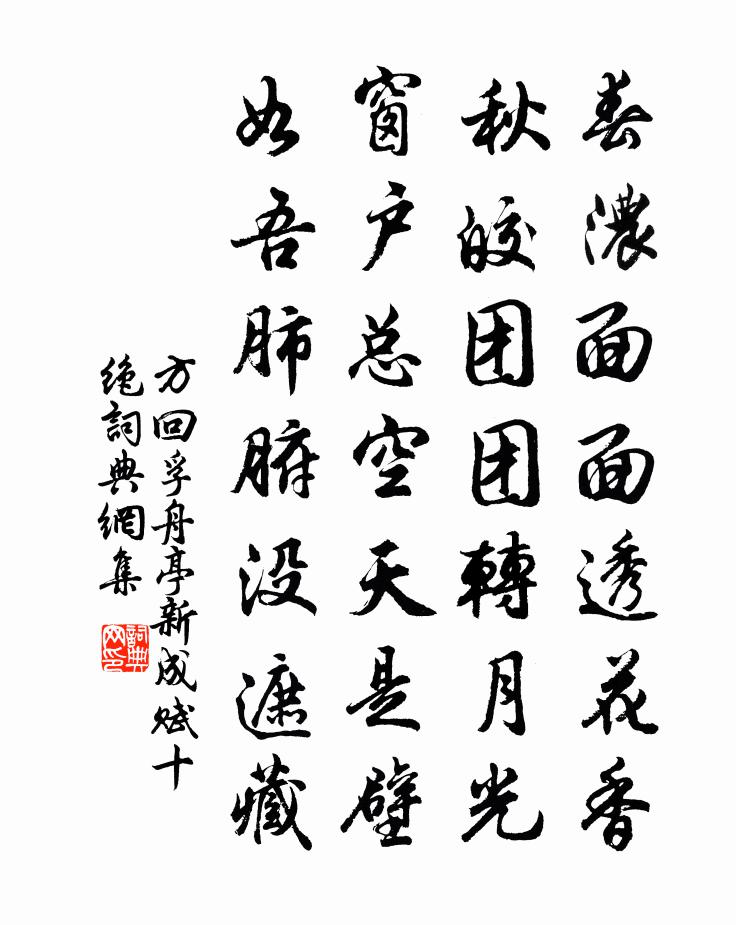 春濃面面透花香
秋皎团团轉月光
窗户总空天是壁
如吾肺腑没遮藏
方回孚舟亭新成赋十
絶詞典網集
詞典网印